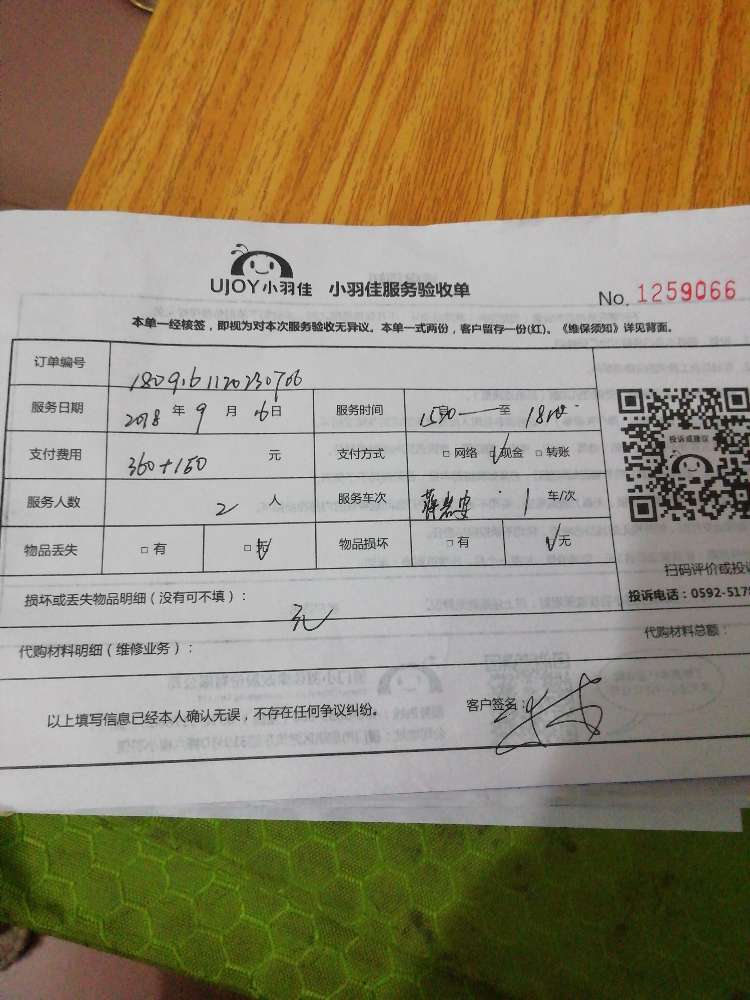 UJOY小羽佳 小羽佳服务验收单
No. 1259066
本单一经核签，即视为对本次服务验收无异议。本单一式两份，客户留存一份(红)。《维保须知》详见背面。
订单编号 1809161120230706
服务日期 2018 年 9 月 16 日 服务时间 至
支付费用 360+150 元 支付方式 □ 网络 √现金 □ 转账
服务人数 2 人 服务车次 1 车/次
物品丢失 □ 有 □ 无 物品损坏 □ 有 √无
投诉或建议
扫码评价或投
投诉电话：0592-517
损坏或丢失物品明细（没有可不填）：
无
代购材料明细（维修业务）： 代购材料总额：
以上填写信息已经本人确认无误，不存在任何争议纠纷。 客户签名：